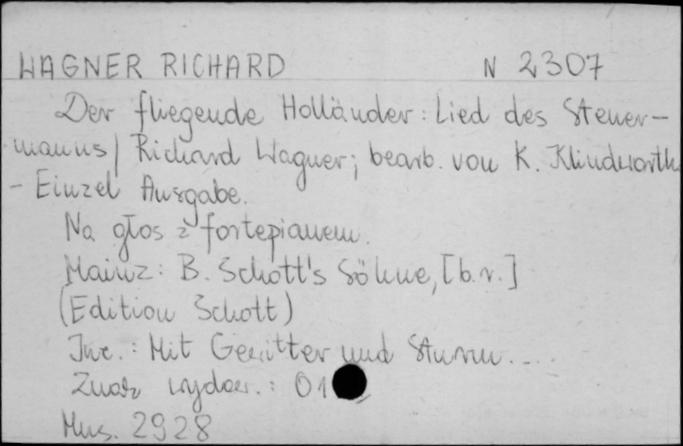 WAGNER RICHARD N 2307
Der fliegende Holländer : Lied des Steuer-
manns / Richard Wagner ; bearb. von K. Klindworth
- Einzel Ausgabe.
Na głos z fortepianem.
Mainz : B. Schott's Söhne, [b.r.]
(Edition Schott)
Inc. : Mit Gewitter und Sturm....
Znak wydaw. : 01
Mus. 2928